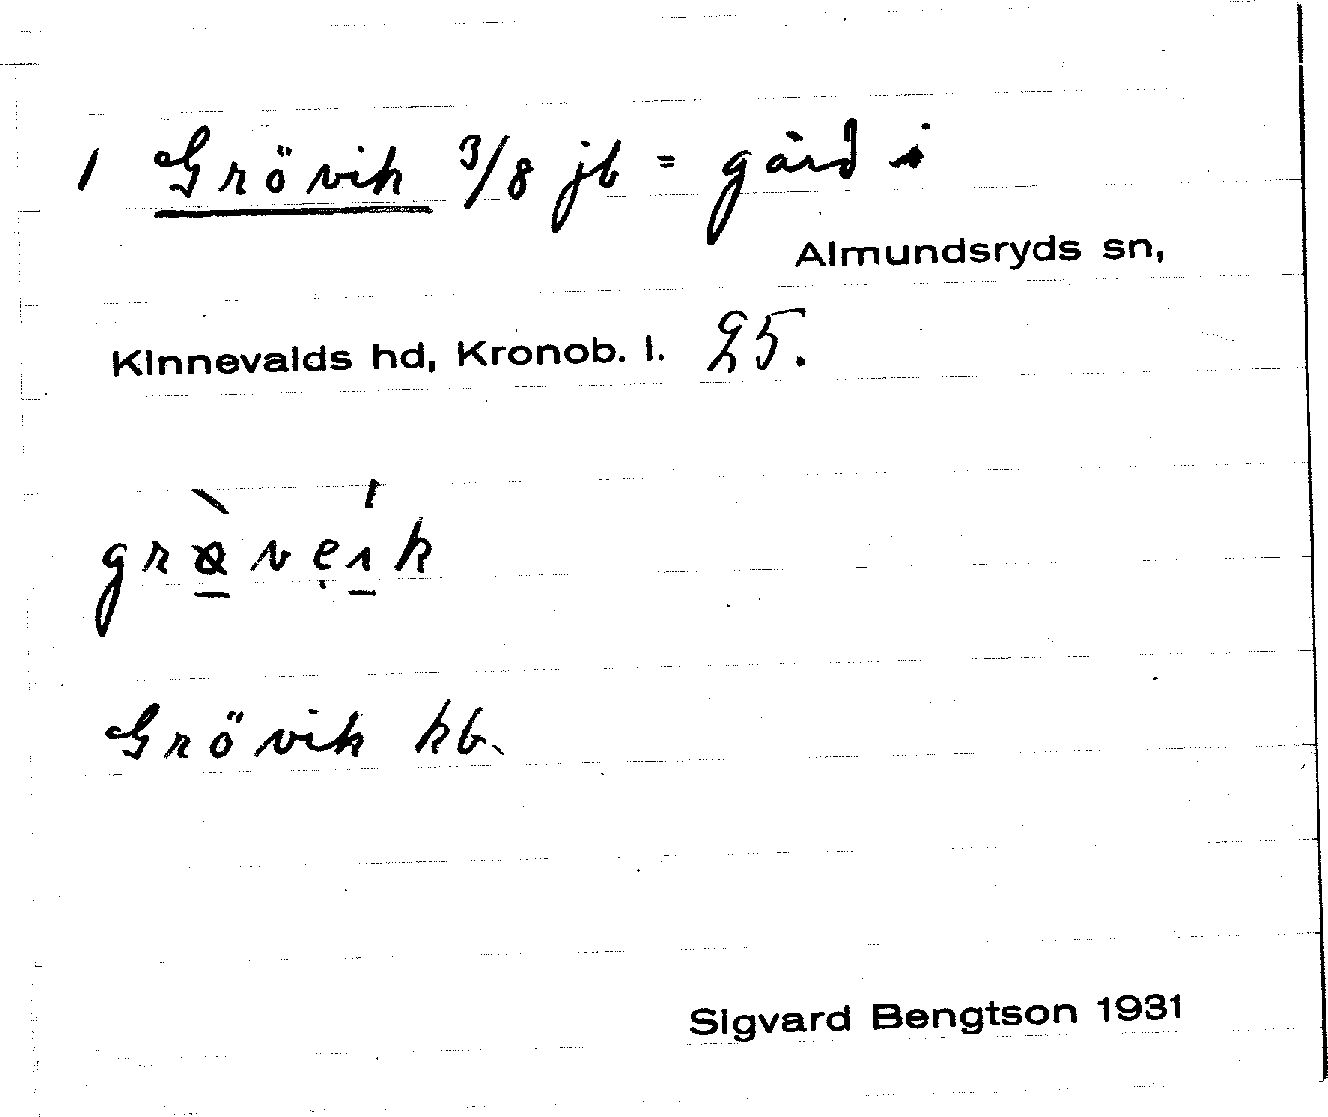 1 Grövik 3/8 jb = gård i
Almundsryds sn,
Kinnevalds hd, Kronob. l. 25.
Grövik kb.
Sigvard Bengtson 1931